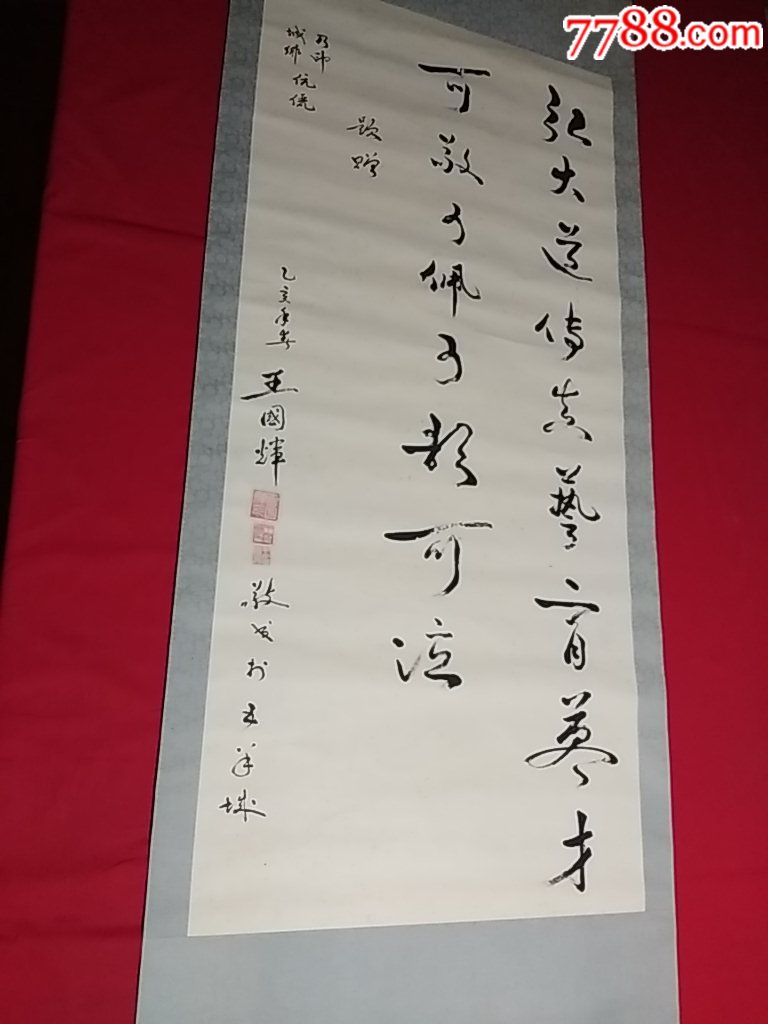 7788.com
弘大道傳真藝育英才
可敬可佩可歌可泣
伉儷
題贈
乙亥年春 王國輝
敬書於五羊城